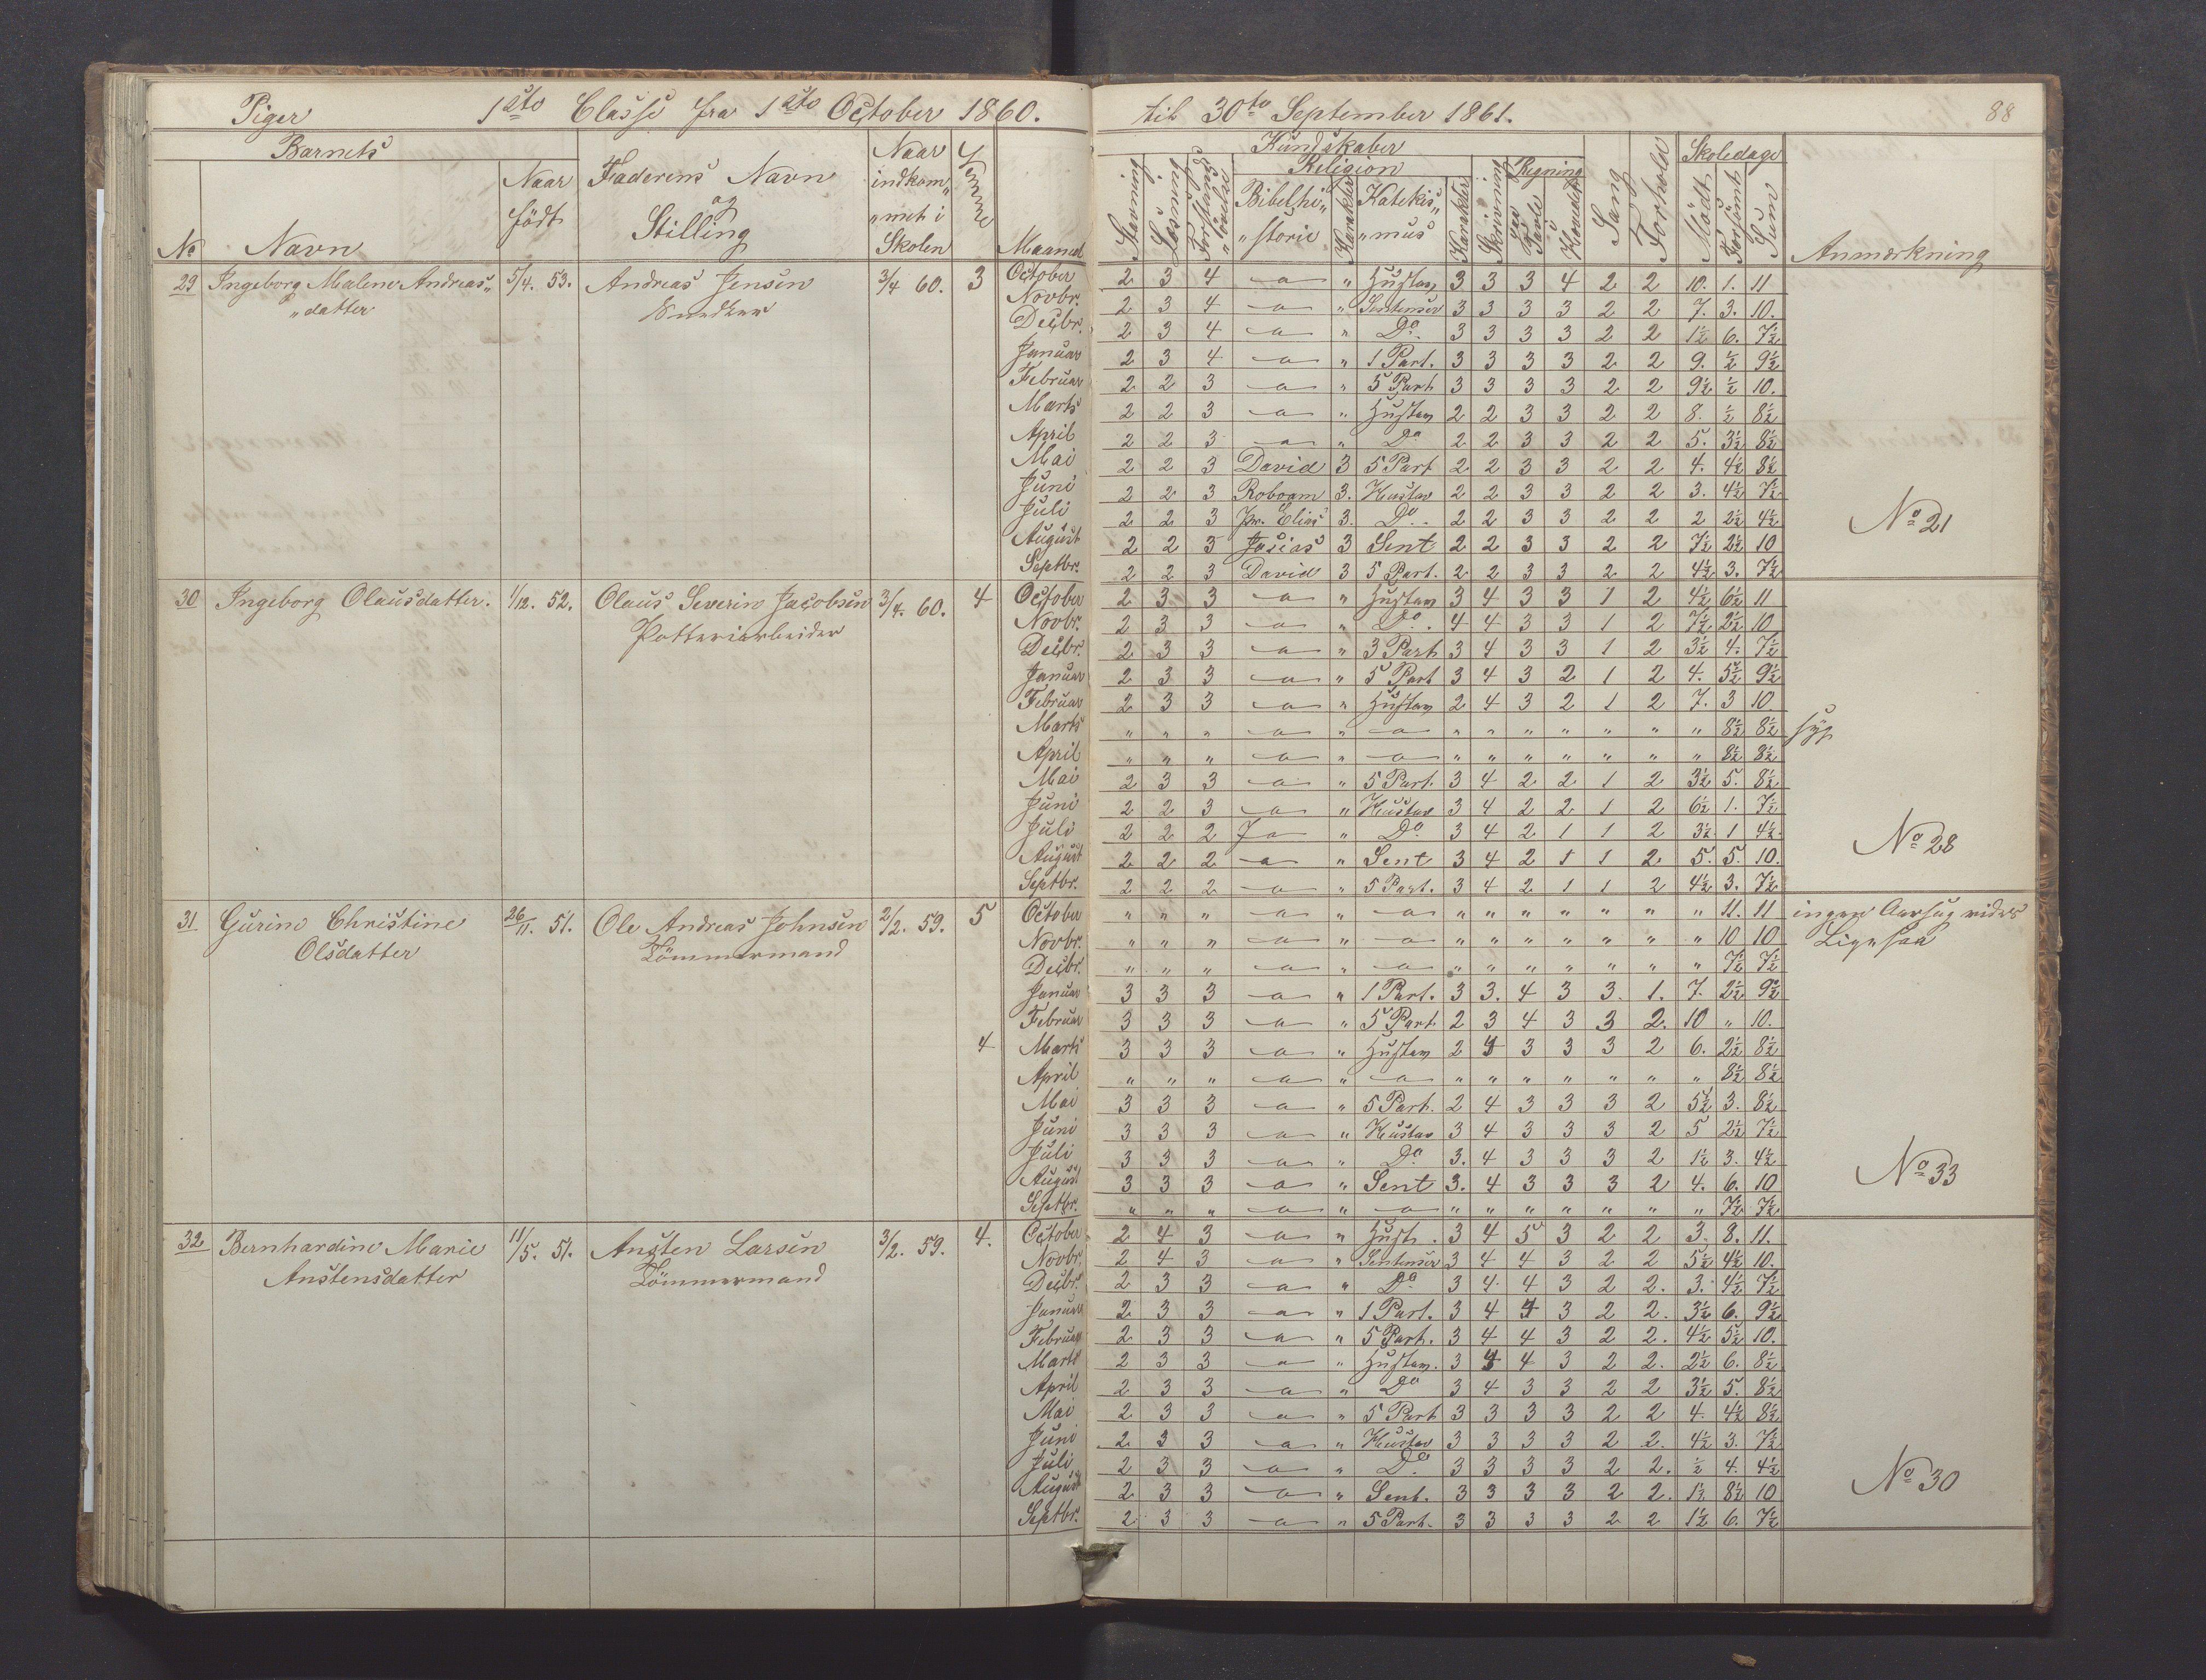 Piger 1ste Classe fra 1ste October 1860. til 30te September 1861. 88
Barnets Faderens Navn og Stilling Naar indkom„ „met i Skolen Maaned Kundskaber Skoledage Anmærkning
No Navn Naar født Stavning Læsning Religion Bibelhi„ „storie Karakter Katekis„ „mus Karakter Skrivning Regning paa Tavle i Hovedet Sang Forhold Mödt Forsömt Sum
29 Ingeborg Malene Andreas„ 5/4. 53. Andreas Jensen 3/4 60. 3 October 2 3 4 — „ Hustav 3 3 3 4 2 2 10. 1. 11
„datter Novbr. 2 3 4 — „ Sentenser 3 3 3 3 2 2 7. 3. 10.
Decbr. 2 3 4 — „ Do 3 3 3 3 2 2 1½ 6. 7½
Januar 2 3 4 — „ 1 Part. 3 3 3 3 2 2 9. ½ 9½
Februar 2 2 3 — „ 5 Part 3 3 3 3 2 2 9½ ½ 10.
Marts 2 2 3 — „ Hustav 2 2 3 3 2 2 8. ½ 8½
April 2 2 3 — „ Do 2 2 3 3 2 2 5. 3½ 8½
Mai 2 2 3 David 3 5 Part 2 2 3 3 2 2 4. 4½ 8½
Juni 2 2 3 Roboam 3. Hustav 2 2 3 3 2 2 3. 4½ 7½
Juli 2 2 3 Elias 3. Do. 2 2 3 3 2 2 2 2½ 4½ No 21
August 2 2 3 Josias 3 Sent 2 2 3 3 2 2 7½ 2½ 10
Septbr. 2 2 3 David 3 5 Part. 2 2 3 3 2 2 4½ 3. 7½
30 Ingeborg Olausdatter. 1/12. 52. Olaus Severin Jacobsen 3/4. 60. 4 October 2 3 3 — „ Hustav 3 4 3 3 1 2 4½ 6½ 11
Potteriarbeider Novbr. 2 3 3 — „ Do. 4 4 3 3 1 2 7½ 2½ 10
Decbr. 2 3 3 — „ 3 Part 3 4 3 3 1 2 3½ 4. 7½
Januar 2 3 3 — „ 5 Part 3 4 3 2 1 2 4. 5½ 9½
Februar 2 3 3 — „ Hustav 2 4 3 2 1 2 7. 3 10.
Marts „ „ „ — „ — „ „ „ „ „ „ „ 8½ 8½ syg
April „ „ „ — „ — „ „ „ „ „ „ „ 8½ 8½
Mai 2 3 3 — „ 5 Part. 3 4 2 2 1 2 3½ 5. 8½
Juni 2 2 3 — „ Hustav 3 4 2 2 1 2 6½ 1. 7½
Juli 2 2 2 — „ Do 3 4 2 1 1 2 3½ 1 4½. No 28
August 2 2 2 — „ Sent 3 4 2 1 1 2 5. 5. 10.
Septbr. 2 2 2 — „ 5 Part. 3 4 2 1 1 2 4½ 3. 7½
31 Gurine Christine 26/11. 51. Ole Andreas Johnsen 2/2. 59. 5 October „ „ „ — „ — „ „ „ „ „ „ „ 11. 11 ingen
Olsdatter Tömmermand Novbr. „ „ „ — „ — „ „ „ „ „ „ „ 10 10 Ligesaa
Decbr. „ „ „ — „ — „ „ „ „ „ „ „ 7½ 7½
Januar 3 3 3 — „ 1 Part. 3 3. 4 3 3. 1. 7. 2½ 9½
Februar 3 3 3 — „ 5 Part 2 3 4 3 3 2. 10 „ 10.
4 Marts 3 3 3 — „ Hustav 2 4 3 3 3 2 6. 2½ 8½
April „ „ „ — „ — „ „ „ „ „ „ „ 8½ 8½
Mai 3 3 3 — „ 5 Part. 2 4 3 3 3 2 5½ 3. 8½
Juni 3 3 3 — „ Hustav 3 4 3 3 3 2 5 2½ 7½
Juli 3 3 3 — „ Do. 3. 4 3 3 3 2 1½ 3. 4½ No 33
August 3 3 3 — „ Sent 3. 4 3 3 3 2 4. 6. 10
Septbr. „ „ „ — „ — „ „ „ „ „ „ „ 7½ 7½
32 Bernhardine Marie 11/5. 51. Austen Larsen 3/2. 59. 4. October 2 4 3 — „ Hust. 3 4 5 3 2 2 3. 8. 11.
Austensdatter Tömmermand Novbr. 2 4 3 — „ Sentenser 3 4 4 3 2 2 5½ 4½ 10.
Decbr. 2 3 3 — „ Do 3 4 4 3 2 2. 3. 4½ 7½
Januar 2 3 3 — „ 1 Part. 3 4 4 3 2 2. 3½ 6. 9½
Februar 2 3 3 — „ 5 Part. 3 4 4 3 2 2. 4½ 5½ 10.
Marts 2 3 3 — „ Hustav. 3 4 4 3 2 2. 2½ 6. 8½
April 2 3 3 — „ Do 3 4 3 3 2 2 3½ 5. 8½
Mai 2 3 3 — „ 5 Part 3 3 3 3 2 2 4. 4½ 8½
Juni 2 3 3 — „ Hustav 3 3 3 3 2 2. 4½ 3. 7½
Juli 2 3 3 — „ Do. 3 3 3 3 2 2. ½ 4. 4½
August 2 3 3 — „ Sent. 3 3 3 3 2 2. 1½ 8½ 10 No 30
Septbr. 2 3 3 — „ 5 Part. 3 3 3 3 2 2 1½ 6. 7½